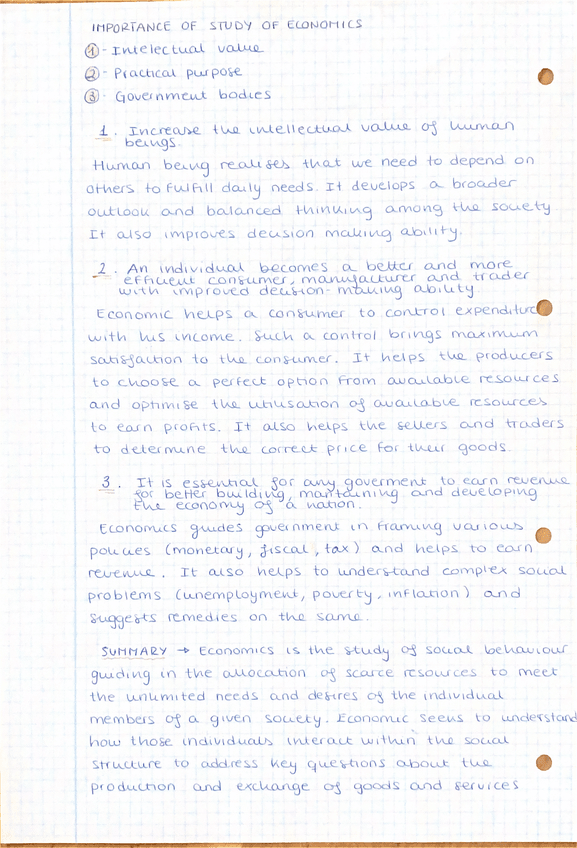 IMPORTANCE OF STUDY OF ECONOMICS
① - Intelectual value
② - Practical purpose
③ - Government bodies
1. Increase the intellectual value of human
beings.
Human being realises that we need to depend on
others to fulfill daily needs. It develops a broader
outlook and balanced thinking among the society
It also improves decision making ability.
2. An individual becomes a better and more
efficient consumer, manufacturer and trader
with improved decision-making ability
Economic helps a consumer to control expenditure
with his income. Such a control brings maximum
satisfaction to the consumer. It helps the producers
to choose a perfect option from available resources
and optimise the utilisation of available resources
to earn profits. It also helps the sellers and traders
to determine the correct price for their goods.
3. It is essential for any goverment to earn revenue
for better building, maintaining and developing
the economy of a nation.
Economics guides government in framing various
policies (monetary, fiscal, tax) and helps to earn
revenue. It also helps to understand complex social
problems (unemployment, poverty, inflation) and
suggests remedies on the same.
SUMMARY → Economics is the study of social behaviour
guiding in the allocation of scarce resources to meet
the unlimited needs and desires of the individual
members of a given society. Economic seeks to understand
how those individuals interact within the social
structure to address key questions about the
production and exchange of goods and services